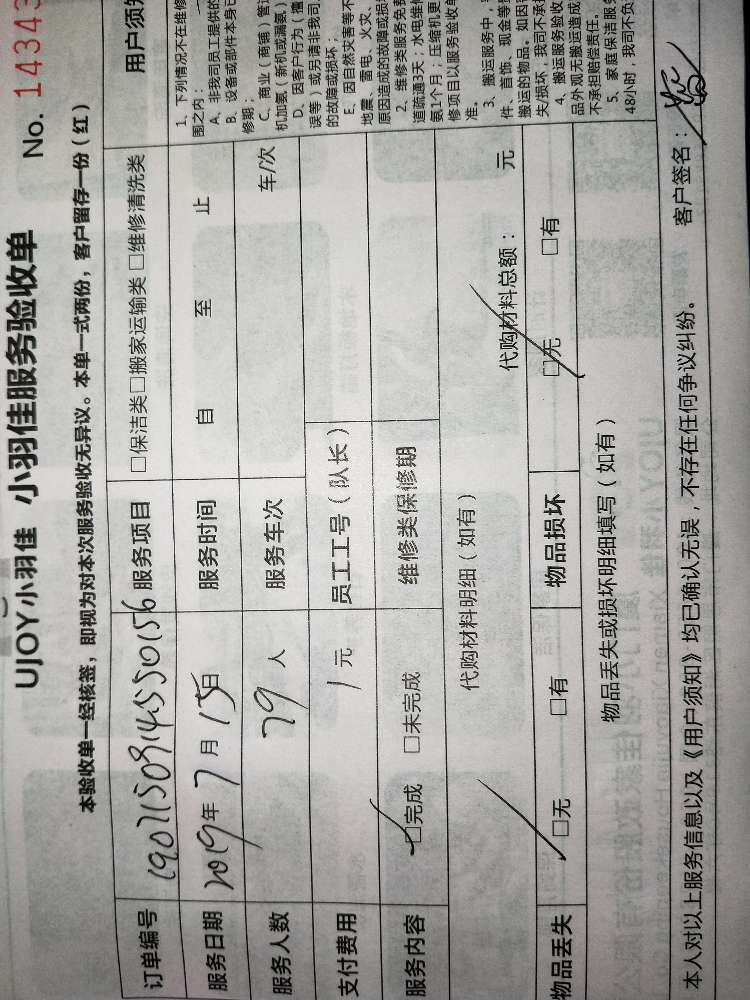 UJOY小羽佳 小羽佳服务验收单 No. 14343
本验收单一经核签，即视为对本次服务验收无异议。本单一式两份，客户留存一份（红）
订单编号 1907150914550156 服务项目 □保洁类□搬家运输类 □维修清洗类
服务日期 2019年7月15日 服务时间 自 至 止
服务人数 人 服务车次 车/次
支付费用 1元 员工工号（队长）
服务内容 □完成 □未完成 维修类保修期
代购材料明细（如有） 代购材料总额： 元
物品丢失 □无 □有 物品损坏 □无 □有
物品丢失或损坏明细填写（如有）
本人对以上服务信息以及《用户须知》均已确认无误，不存在任何争议纠纷。 客户签名：
用户须知
1、下列情况不在维修
围之内：
A、非我司员工提供的
B、设备或部件本身已
修期；
C、商业（商铺、管道
机加氨（新机或漏氨）
D、因客户行为（擅
误等）或另请非我司
的故障或损坏；
E、因自然灾害等不
地震、雷电、火灾、
原因造成的故障或损
2、维修类服务免费
道疏通3天；水电维修
氨1个月；压缩机更
修项目以服务验收单
准。
3、搬运服务中，
件、首饰、现金等贵
搬运的物品。如因
失/损坏，我司不承担
4、搬运服务验收
品外观无搬运造成
不承担赔偿责任。
5、家庭保洁服务
48小时，我司不负